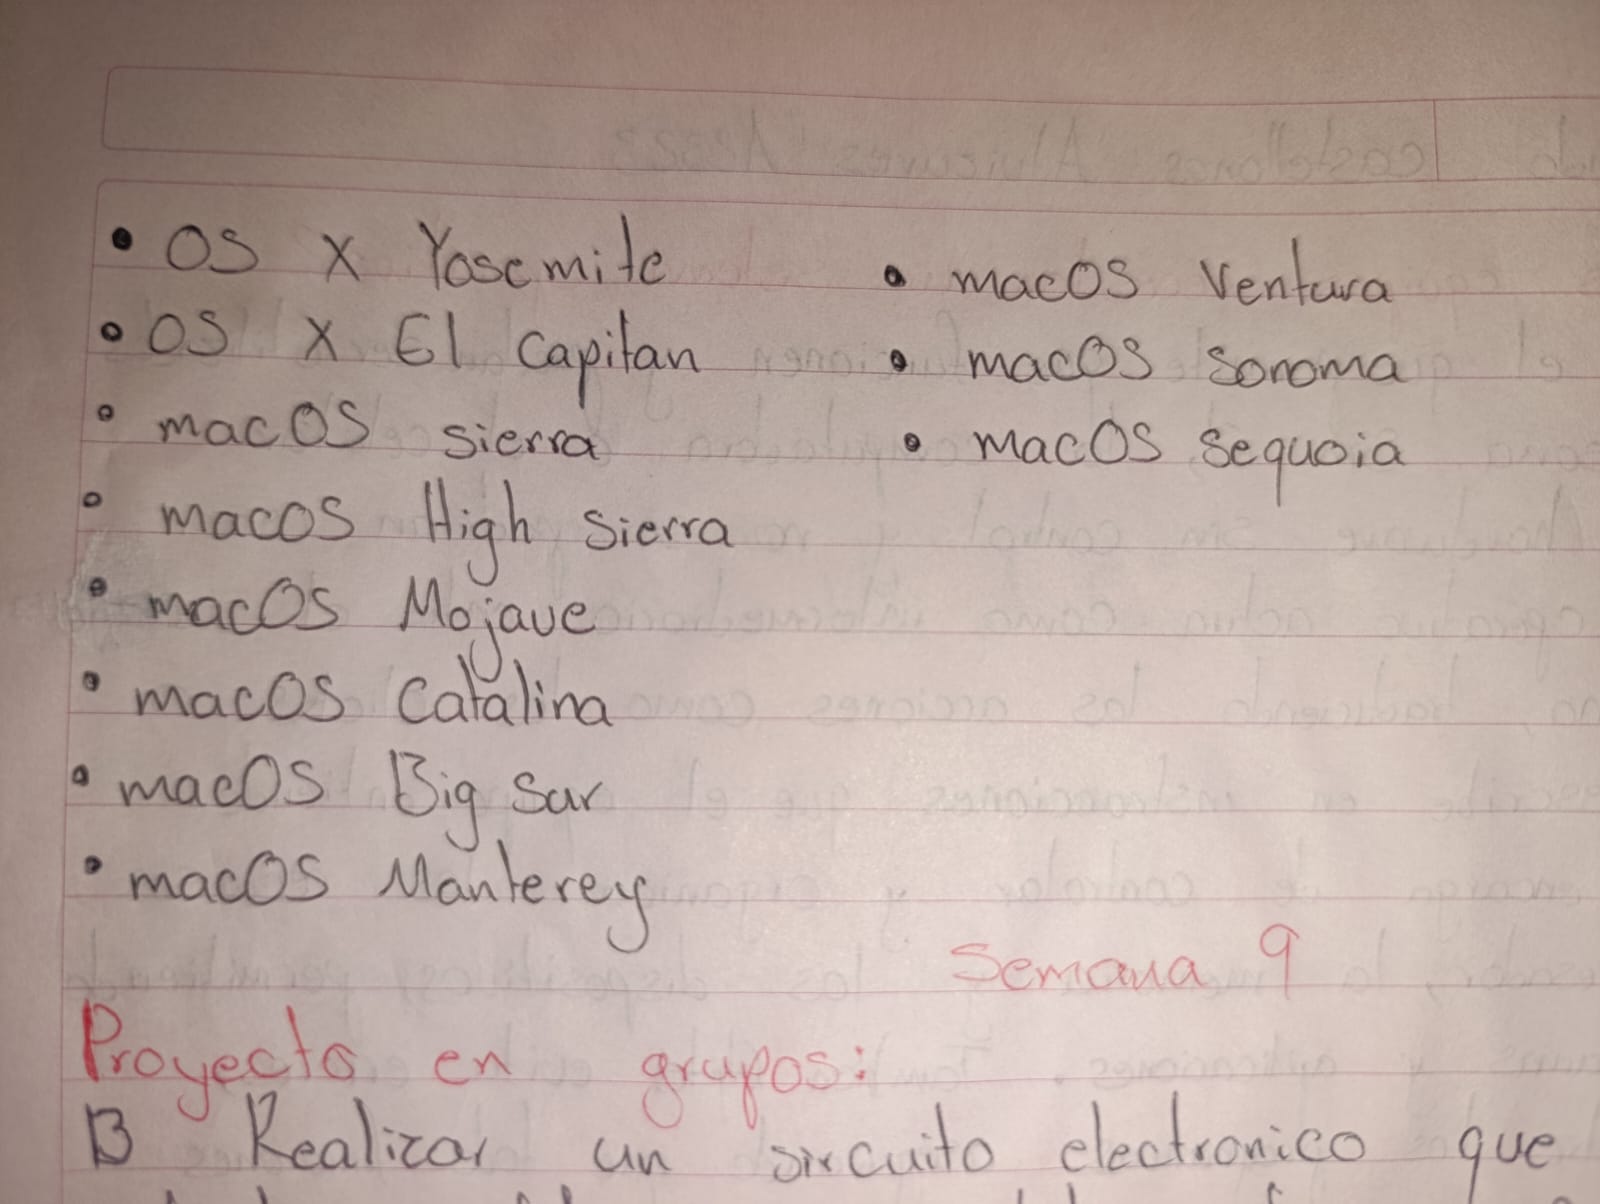 • OS X Yosemite
• OS X El Capitan
• macOS sierra
• macOS High Sierra
• macOS Mojave
• macOS Catalina
• macOS Big Sur
• macOS Manterey
• macOS Ventura
• macOS Sonoma
• macOS Sequoia
Semana 9
Proyecto en grupos:
B Realizar un sircuito electronico que